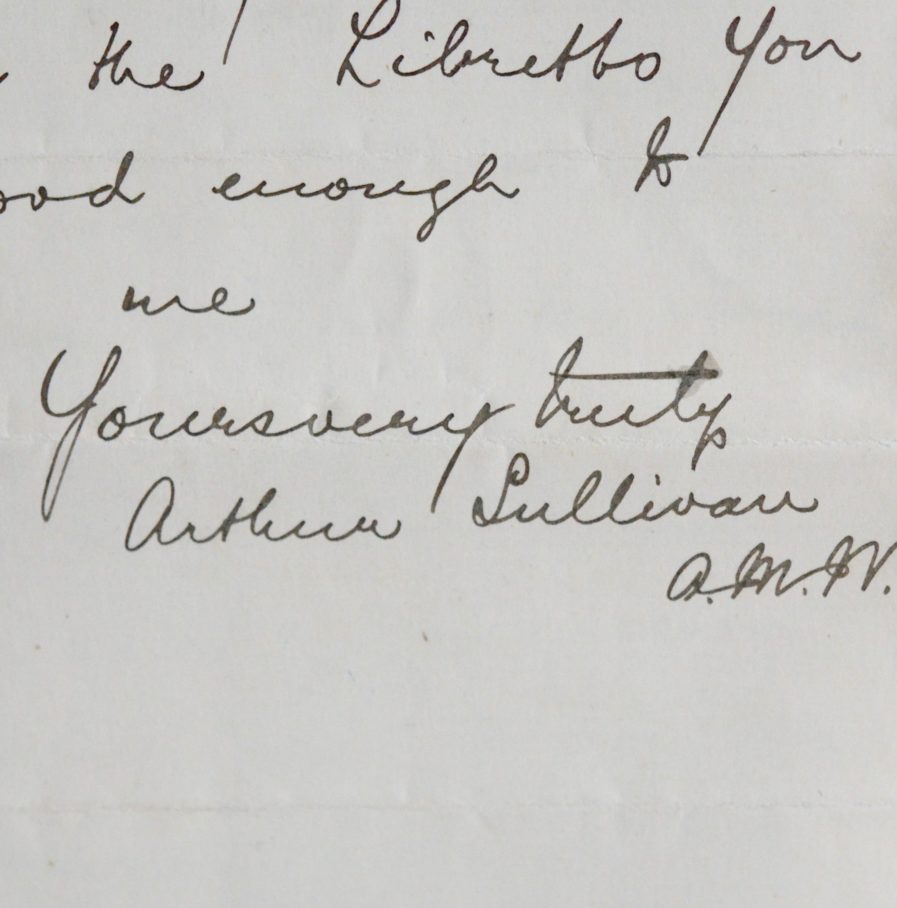 the Libretto you
ood enough to
me
Yours very truly
Arthur Sullivan
A.M.W.